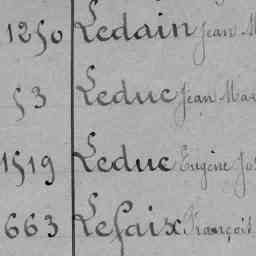 1250 Ledain Jean M
53 Leduc Jean Mar
1519 Leduc Eugène Jo
663 Lefaix François